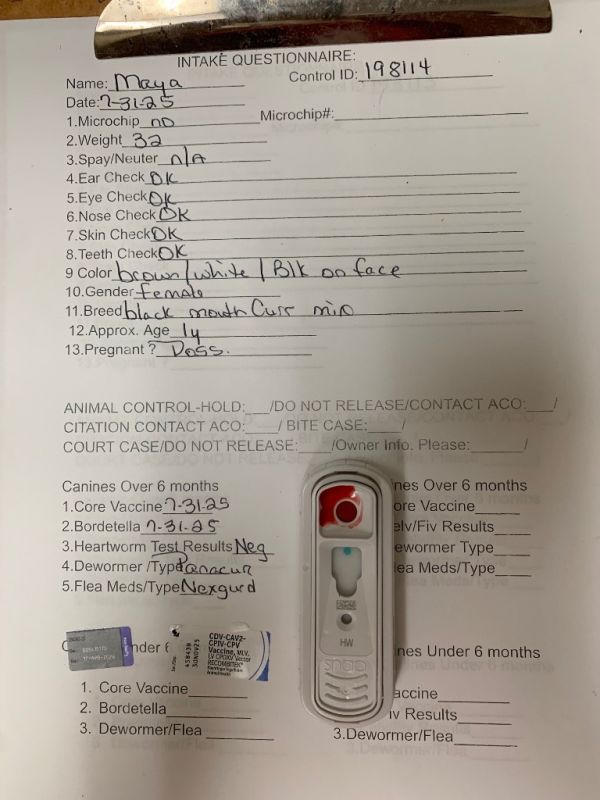 INTAKE QUESTIONNAIRE:
Name: Maya Control ID: 198114
Date: 7-31-25
1.Microchip no Microchip#:
2.Weight 32
3.Spay/Neuter n/A
4.Ear Check OK
5.Eye Check OK
6.Nose Check OK
7.Skin Check OK
8.Teeth Check OK
9 Color brown/white/Blk on face
10.Gender female
11.Breed black mouth Curr mix
12.Approx. Age 1y
13.Pregnant ? Poss.
ANIMAL CONTROL-HOLD:___/DO NOT RELEASE/CONTACT ACO:___/
CITATION CONTACT ACO:____/ BITE CASE:____/
COURT CASE/DO NOT RELEASE:____/Owner Info. Please:______/
Canines Over 6 months
1.Core Vaccine 7-31-25
2.Bordetella 7-31-25
3.Heartworm Test Results Neg
4.Dewormer /Type Panacur
5.Flea Meds/Type Nexgurd
nes Over 6 months
ore Vaccine
elv/Fiv Results
ewormer Type
lea Meds/Type
HW
SNAP
nder 6
CDV-CAV2-
CPIV-CPV
Vaccine, MLV,
LV CPOXV Vector
RECOMBITEK
30NOV25
1. Core Vaccine
2. Bordetella
3. Dewormer/Flea
nes Under 6 months
accine
iv Results
3.Dewormer/Flea